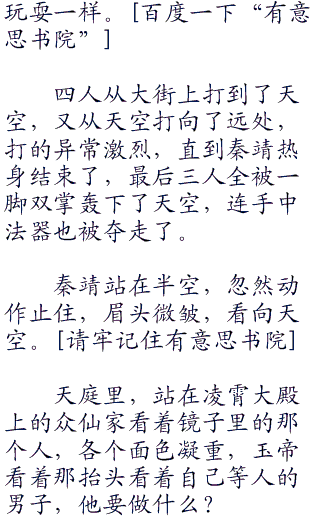 玩耍一样。[百度一下“有意
思书院”]
四人从大街上打到了天
空，又从天空打向了远处，
打的异常激烈，直到秦靖热
身结束了，最后三人全被一
脚双掌轰下了天空，连手中
法器也被夺走了。
秦靖站在半空，忽然动
作止住，眉头微皱，看向天
空。[请牢记住有意思书院]
天庭里，站在凌霄大殿
上的众仙家看着镜子里的那
个人，各个面色凝重，玉帝
看着那抬头看着自己等人的
男子，他要做什么？